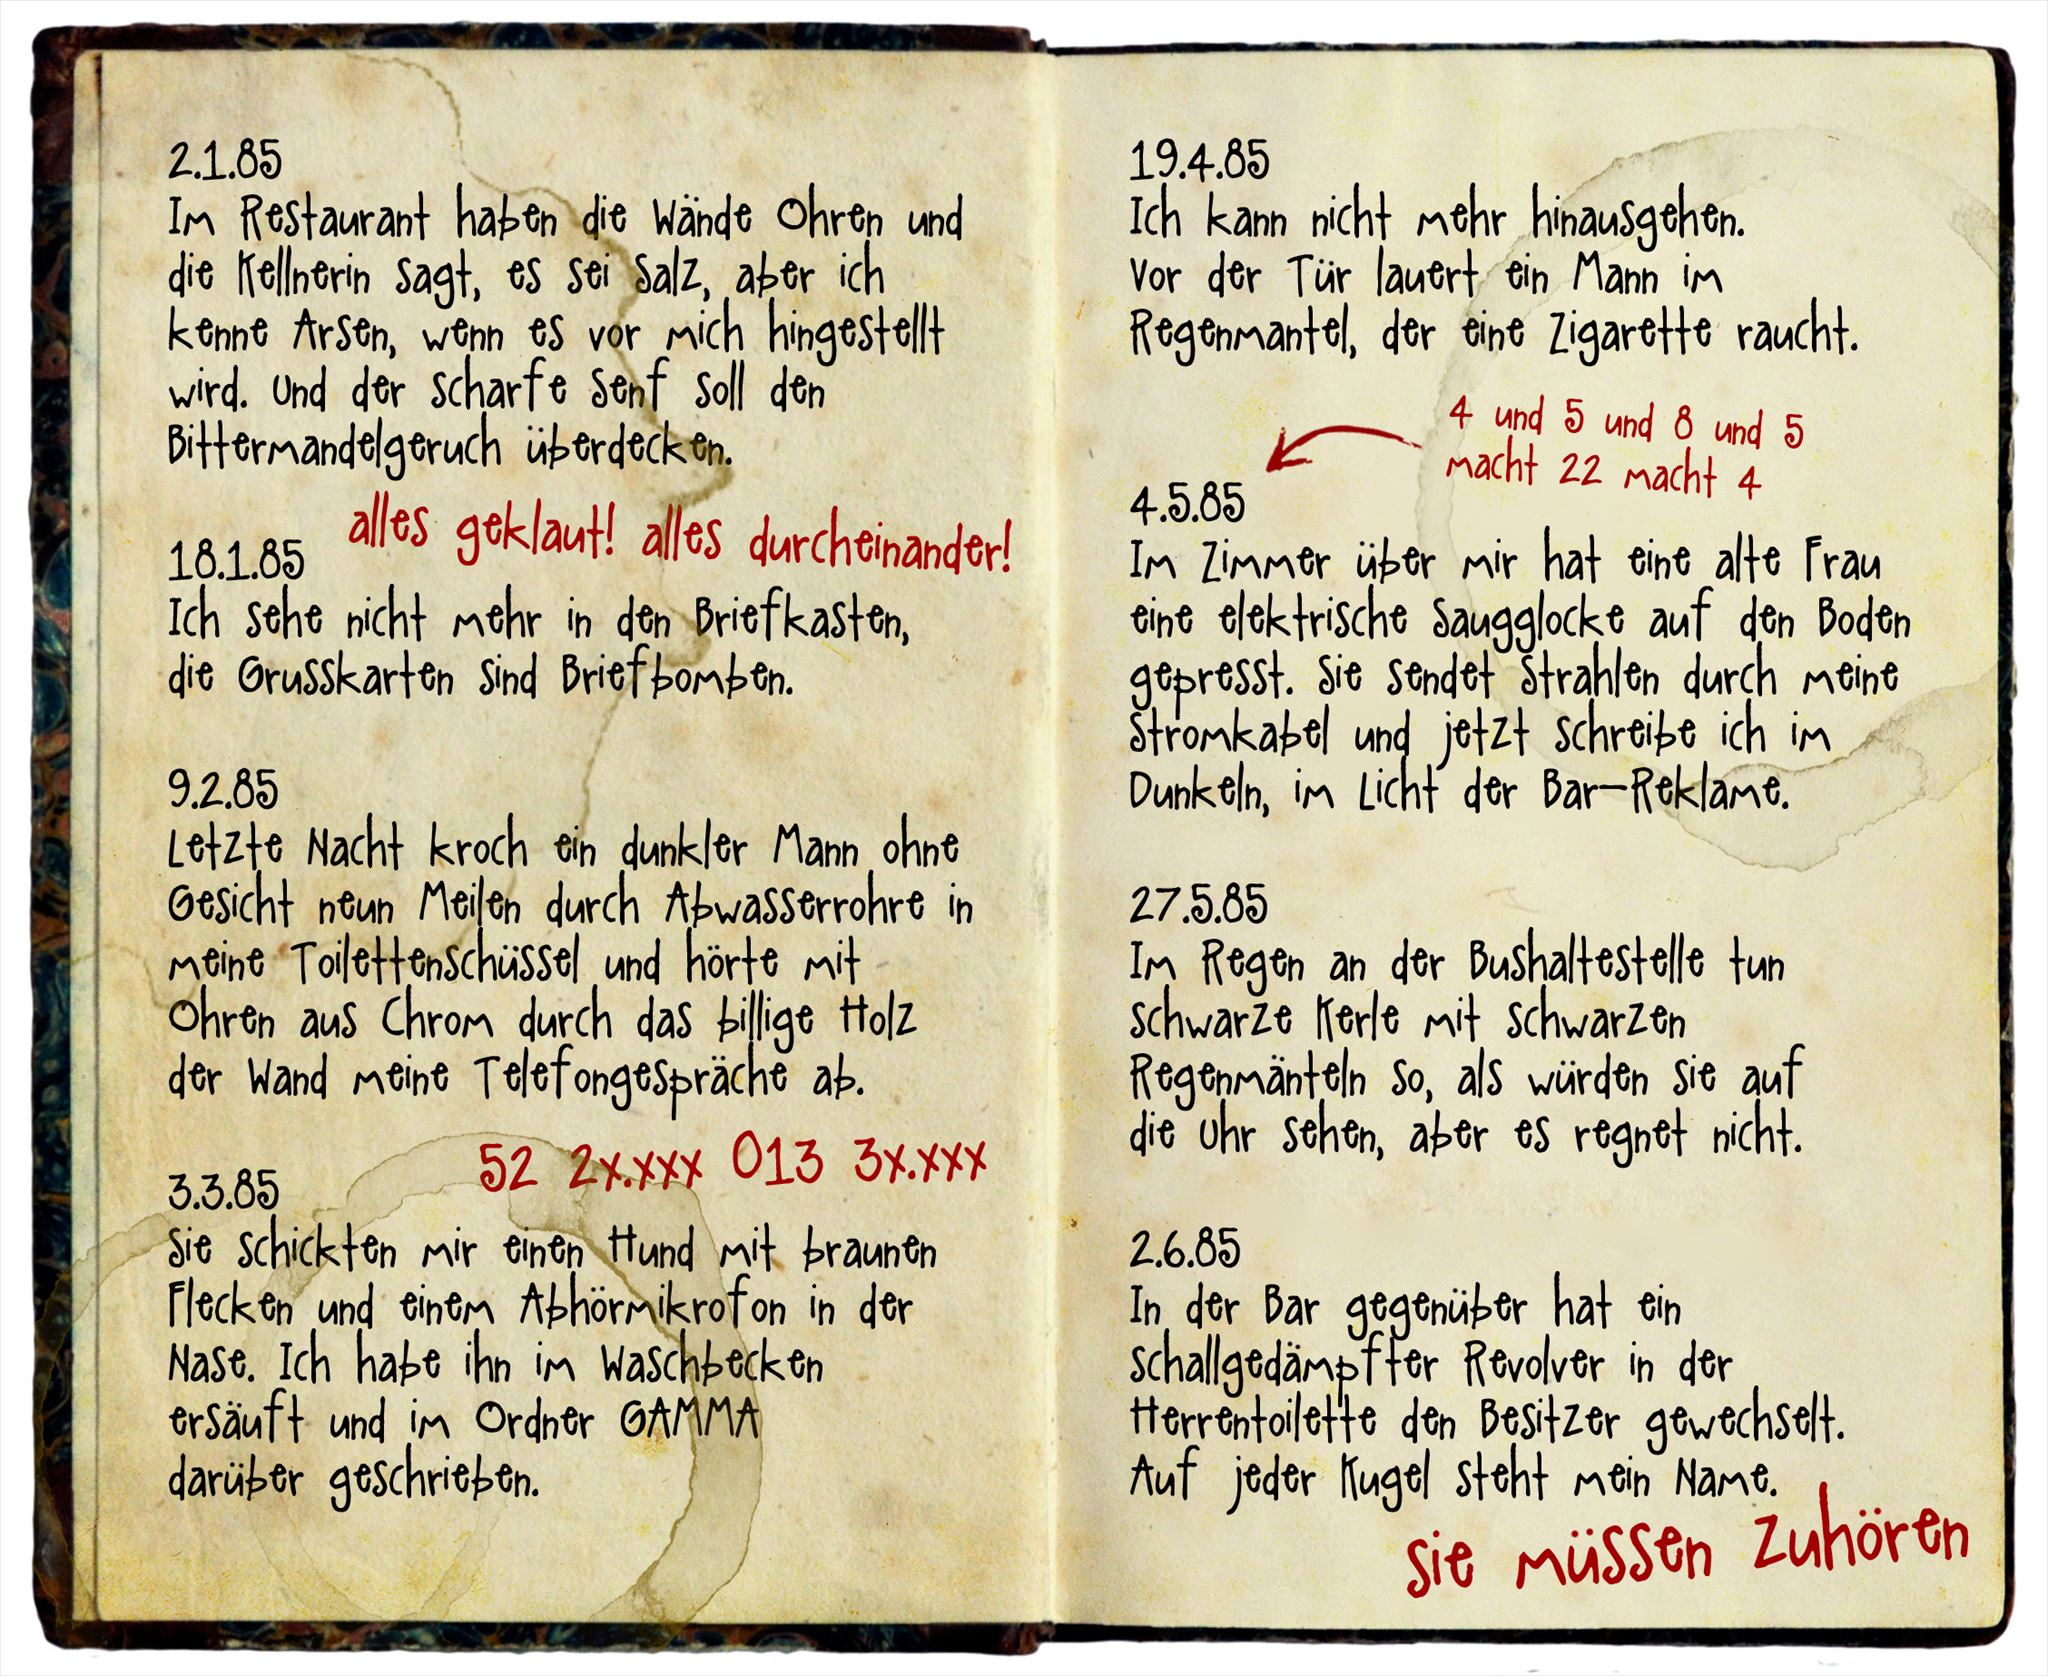 2.1.85
Im Restaurant haben die Wände Ohren und
die Kellnerin sagt, es sei Salz, aber ich
kenne Arsen, wenn es vor mich hingestellt
wird. Und der scharfe Senf soll den
Bittermandelgeruch überdecken.
alles geklaut! alles durcheinander!
18.1.85
Ich sehe nicht mehr in den Briefkasten,
die Grusskarten sind Briefbomben.
9.2.85
Letzte Nacht kroch ein dunkler Mann ohne
Gesicht neun Meilen durch Abwasserrohre in
meine Toilettenschüssel und hörte mit
Ohren aus Chrom durch das billige Holz
der Wand meine Telefongespräche ab.
52 2x.xxx 013 3x.xxx
3.3.85
Sie schickten mir einen Hund mit braunen
Flecken und einem Abhörmikrofon in der
Nase. Ich habe ihn im Waschbecken
ersäuft und im Ordner GAMMA
darüber geschrieben.
19.4.85
Ich kann nicht mehr hinausgehen.
Vor der Tür lauert ein Mann im
Regenmantel, der eine Zigarette raucht.
4 und 5 und 8 und 5
macht 22 macht 4
4.5.85
Im Zimmer über mir hat eine alte Frau
eine elektrische Saugglocke auf den Boden
gepresst. Sie sendet Strahlen durch meine
Stromkabel und jetzt schreibe ich im
Dunkeln, im Licht der Bar-Reklame.
27.5.85
Im Regen an der Bushaltestelle tun
schwarze Kerle mit schwarzen
Regenmänteln so, als würden sie auf
die Uhr sehen, aber es regnet nicht.
2.6.85
In der Bar gegenüber hat ein
schallgedämpfter Revolver in der
Herrentoilette den Besitzer gewechselt.
Auf jeder Kugel steht mein Name.
sie müssen zuhören